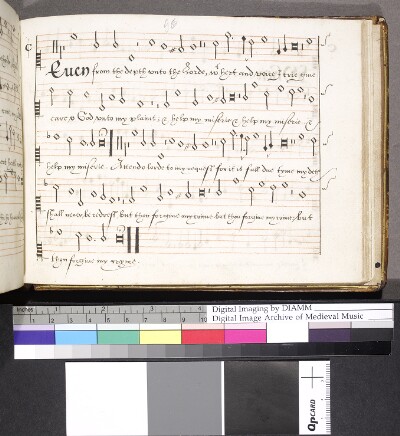 Euen from the depth unto the Lorde, wt hert and voice I crie giue
eare o God unto my plaint, & help my miserie & help my miserie &
help my miserie. Attende lorde to my request for it is full due time my dett
shall neuer be redrest but thou forgiue my crime but thou forgiue my crime, but
thou forgiue my cryme.
inches 1 2 3 4
1 2 3 4 5 6 7 8 9 10
Digital Imaging by DIAMM
Digital Image Archive of Medieval Music
QPCARD